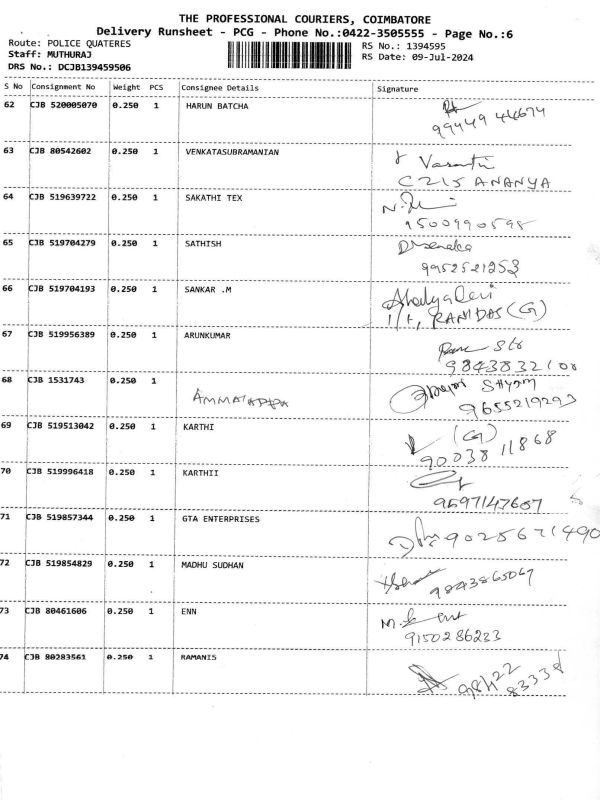 THE PROFESSIONAL COURIERS, COIMBATORE
Delivery Runsheet - PCG - Phone No.:0422-3505555 - Page No.:6
Route: POLICE QUATERES
Staff: MUTHURAJ
DRS No.: DCJB139459506
RS No.: 1394595
RS Date: 09-Jul-2024
S No Consignment No Weight PCS Consignee Details Signature
62 CJB 520005070 0.250 1 HARUN BATCHA
63 CJB 80542602 0.250 1 VENKATASUBRAMANIAN
Vasantu
C215 ANANYA
64 CJB 519639722 0.250 1 SAKATHI TEX
9500990598
65 CJB 519704279 0.250 1 SATHISH
9952521253
66 CJB 519704193 0.250 1 SANKAR .M
1/1, RAMDAS (G)
67 CJB 519956389 0.250 1 ARUNKUMAR
68 CJB 1531743 0.250 1
Shyam
9655219293
69 CJB 519513042 0.250 1 KARTHI
(G)
90038 11868
70 CJB 519996418 0.250 1 KARTHII
9597147687
71 CJB 519857344 0.250 1 GTA ENTERPRISES
9025671490
72 CJB 519854829 0.250 1 MADHU SUDHAN
9843865069
73 CJB 80461606 0.250 1 ENN
9150286233
74 CJB 80283561 0.250 1 RAMANIS
98422
83338